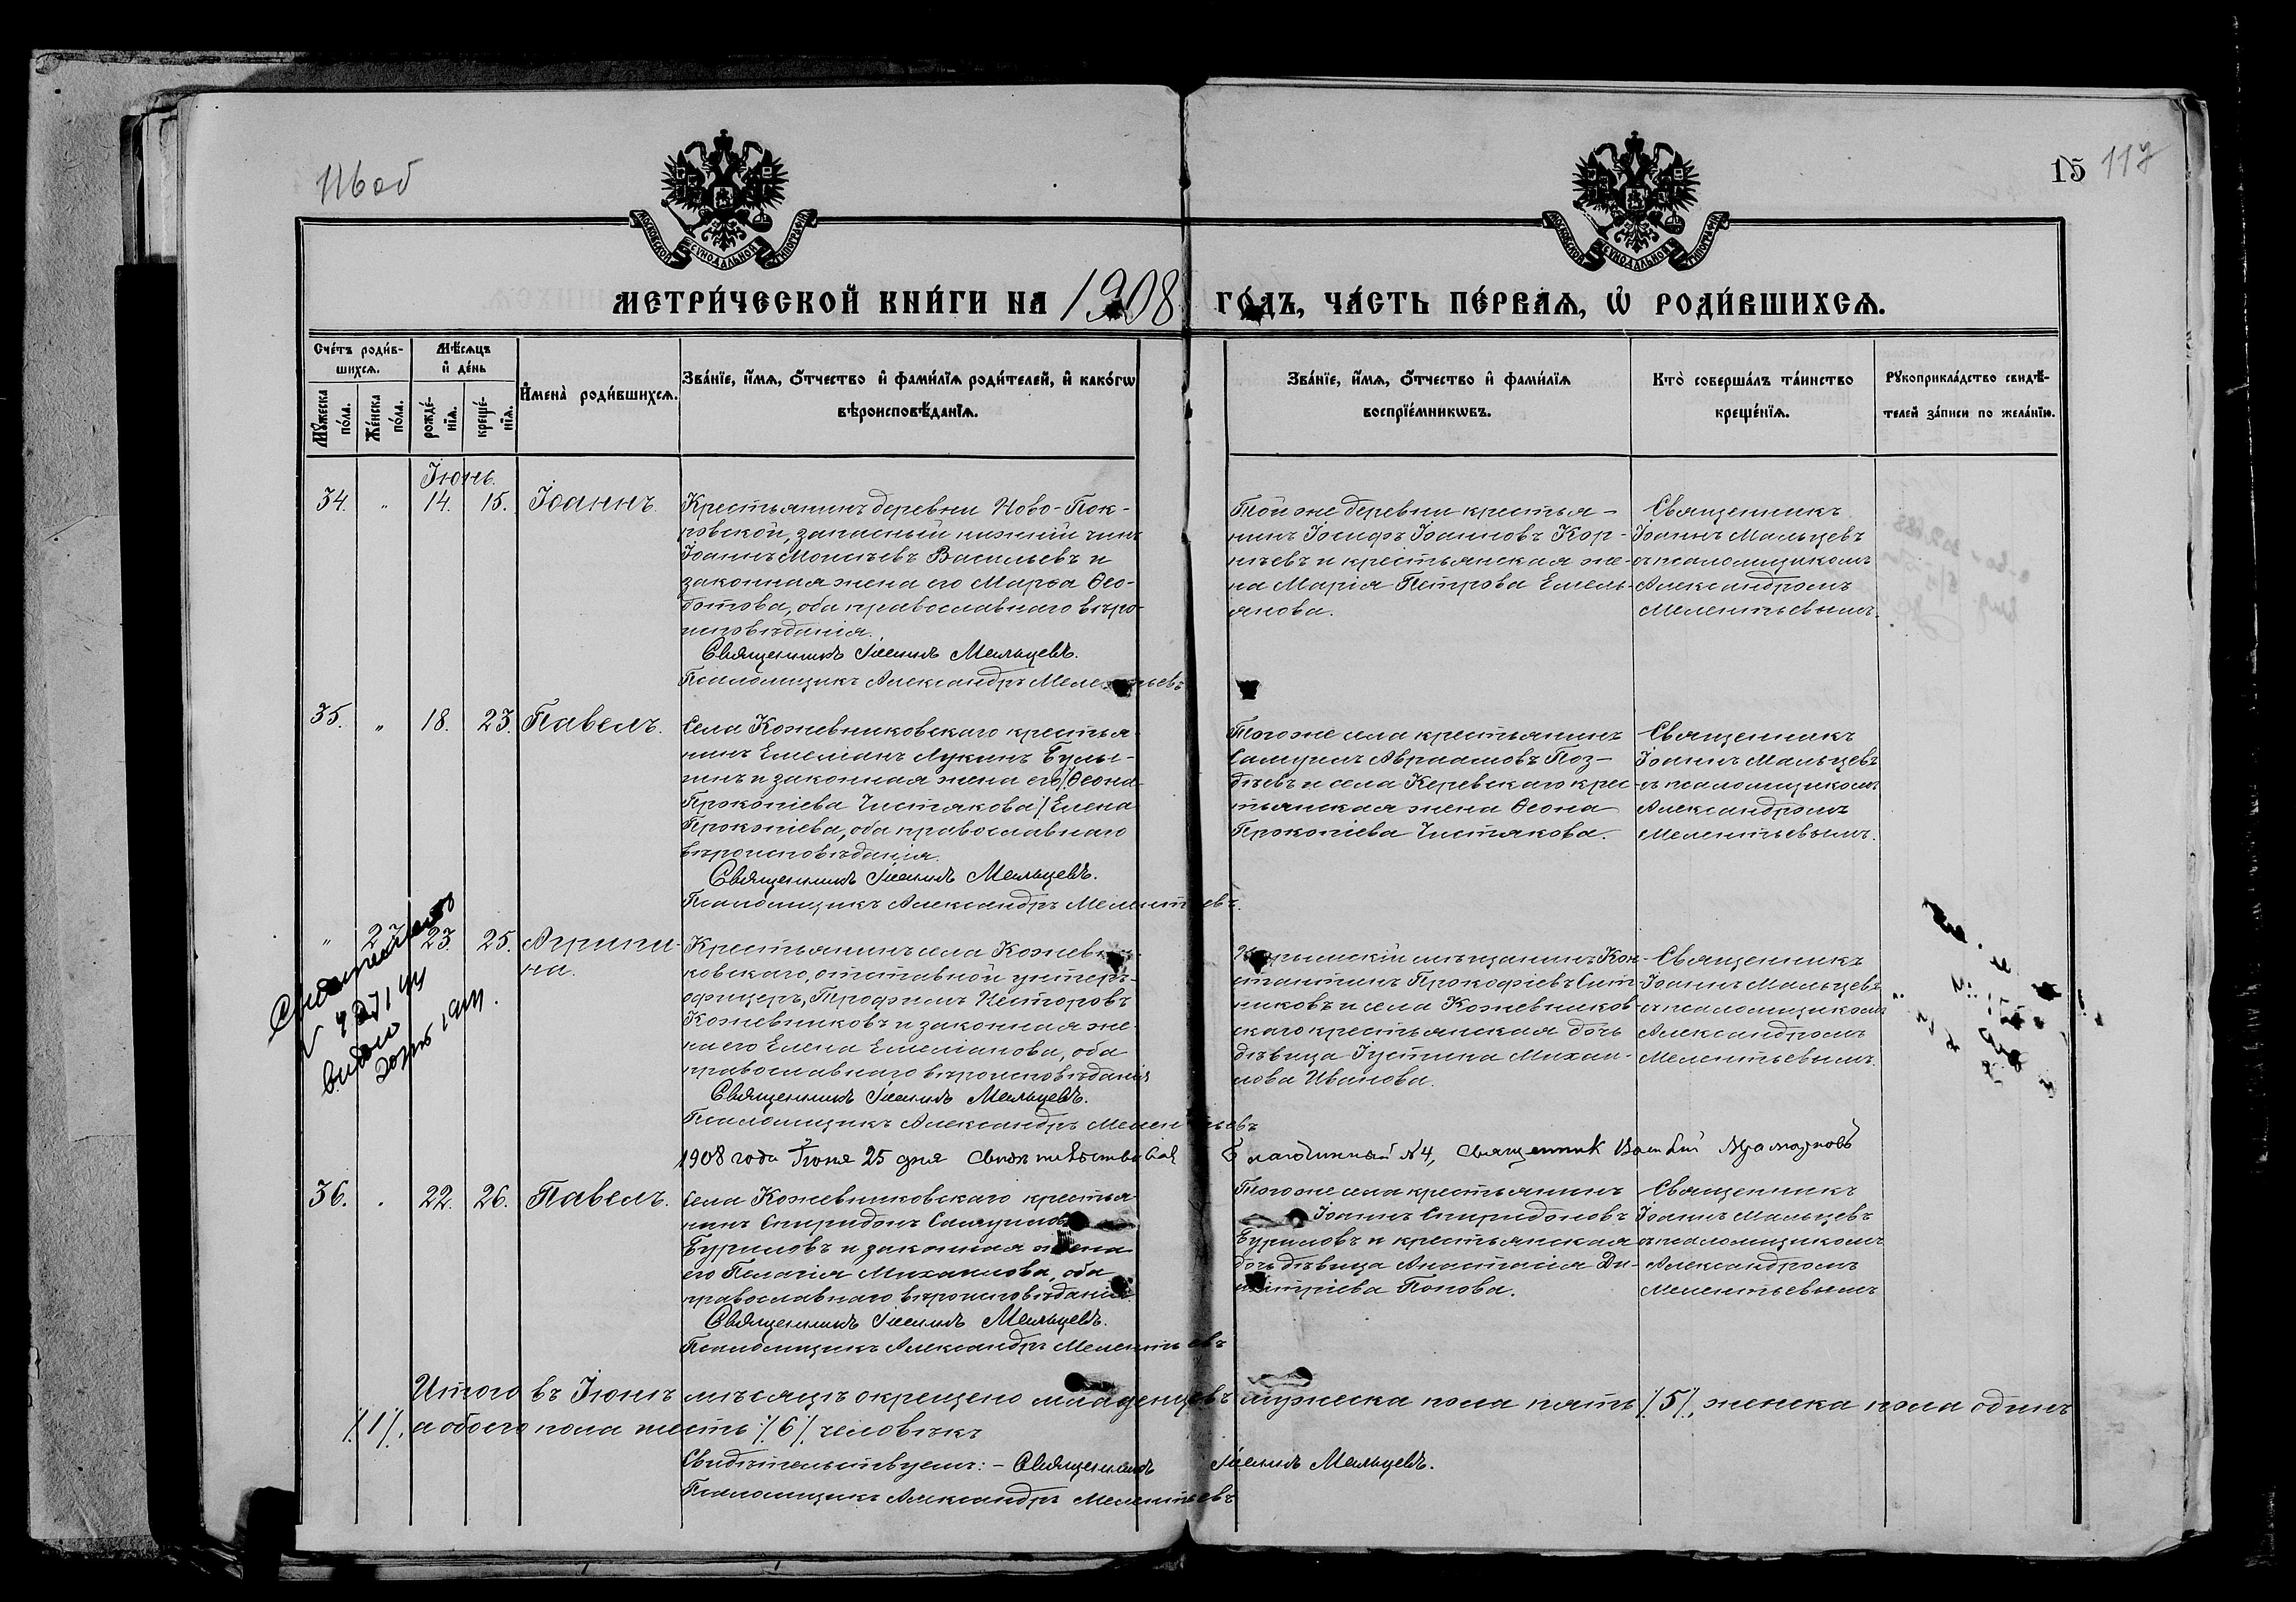 116 об
15 117
МОСКОВСКОЙ СѴНОДАЛЬНОЙ ТИПОГРАФІИ
МОСКОВСКОЙ СѴНОДАЛЬНОЙ ТИПОГРАФІИ
МЕТРИ́ЧЕСКОЙ КНИ́ГИ НА 1908 ГО́ДЪ, ЧА́СТЬ ПЕ́РВАѦ, Ѡ РОДИ́ВШИХСѦ.
Сче́тъ роди́в-
шихсѧ.
Мꙋжеска по́ла.
Же́нска по́ла.
Мѣ́сѧцъ
и҆ де́нь
рожде́-
нїѧ.
креще́-
нїѧ.
И҆мена̀ роди́вшихсѧ.
Зва́нїе, и҆́мѧ, ѻ҆́тчество и҆ фами́лїѧ роди́телей, и҆ како́гѡ
вѣроисповѣ́данїѧ.
Зва́нїе, и҆́мѧ, ѻ҆́тчество и҆ фами́лїѧ
воспрїе́мникѡвъ.
Кто̀ соверша́лъ та́инство
креще́нїѧ.
Рꙋкоприкла́дство свидѣ́-
телей за́писи по жела́нїю.
Іюнь.
34. " 14. 15. Іоаннъ.
Крестьянинъ деревни Ново-Пок-
ровской, запасный нижній чинъ
Іоаннъ Моисѣевъ Васильевъ и
законная жена его Марѳа Ѳео-
дотова, оба православнаго вѣро-
исповѣданія.
Священникъ Іоаннъ Мальцевъ.
Псаломщикъ Александръ Мелентьевъ
Той же деревни крестья-
нинъ Іосифъ Іоанновъ Кор-
нѣевъ и крестьянская же-
на Марія Петрова Емель-
янова.
Священникъ
Іоаннъ Мальцевъ
съ псаломщикомъ
Александромъ
Мелентьевымъ.
35. " 18. 23. Павелъ.
Села Кожевниковскаго крестья-
нинъ Емеліанъ Лукинъ Булы-
гинъ и законная жена его /Ѳеона
Прокопіева Чистякова/ Елена
Прокопіева, оба православнаго
вѣроисповѣданія.
Священникъ Іоаннъ Мальцевъ.
Псаломщикъ Александръ Мелентьевъ.
Того же села крестьянинъ
Самуилъ Авраамовъ Поз-
дѣевъ и села Керевскаго крес-
тьянская жена Ѳеона
Прокопіева Чистякова.
Священникъ
Іоаннъ Мальцевъ
съ псаломщикомъ
Александромъ
Мелентьевымъ.
" 27 23 25. Агриппи-
на.
Крестьянинъ села Кожевни-
ковскаго, отставной унтеръ-
офицеръ, Трофимъ Несторовъ
Кожевниковъ и законная же-
на его Елена Емеліанова, оба
православнаго вѣроисповѣданія
Священникъ Іоаннъ Мальцевъ.
Псаломщикъ Александръ Мелентьевъ
мѣщанинъ Кон-
стантинъ Прокофіевъ Сит-
никовъ и села Кожевников-
скаго крестьянская дочь
дѣвица Іустина Михаи-
лова Иванова.
Священникъ
Іоаннъ Мальцевъ
съ псаломщикомъ
Александромъ
Мелентьевымъ.
1908 года Іюня 25 дня Благочинный №4, священникъ
36. " 22. 26. Павелъ.
Села Кожевниковскаго крестья-
нинъ Спиридонъ Самуиловъ
Буриловъ и законная жена
его Пелагія Михаилова, оба
православнаго вѣроисповѣданія.
Священникъ Іоаннъ Мальцевъ.
Псаломщикъ Александръ Мелентьевъ
Того же села крестьянинъ
Іоаннъ Спиридоновъ
Буриловъ и крестьянская
дочь дѣвица Анастасія Ди-
митріева Попова.
Священникъ
Іоаннъ Мальцевъ
съ псаломщикомъ
Александромъ
Мелентьевымъ
Итого въ Іюнѣ мѣсяцѣ окрещено младенцевъ мужеска пола пять /5/, женска пола одинъ
/1/, а обоего пола шесть /6/ человѣкъ
Свидѣтельствуемъ: – Священникъ Іоаннъ Мальцевъ.
Псаломщикъ Александръ Мелентьевъ